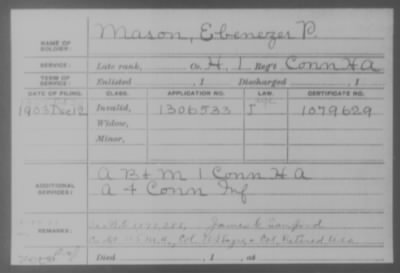 NAME OF SOLDIER: Mason, Ebenezer P.
SERVICE: Late rank, Co. H, 1 Reg't Conn H A
TERM OF SERVICE: Enlisted , 1 Discharged , 1
DATE OF FILING. CLASS. APPLICATION NO. LAW. CERTIFICATE NO.
1903 Dec 12 Invalid, 1306533 I 1079629
Widow,
Minor,
ADDITIONAL SERVICES: A B & M 1 Conn H A
A 4 Conn Inf
REMARKS: James
Col. Retired
Died , 1 , at